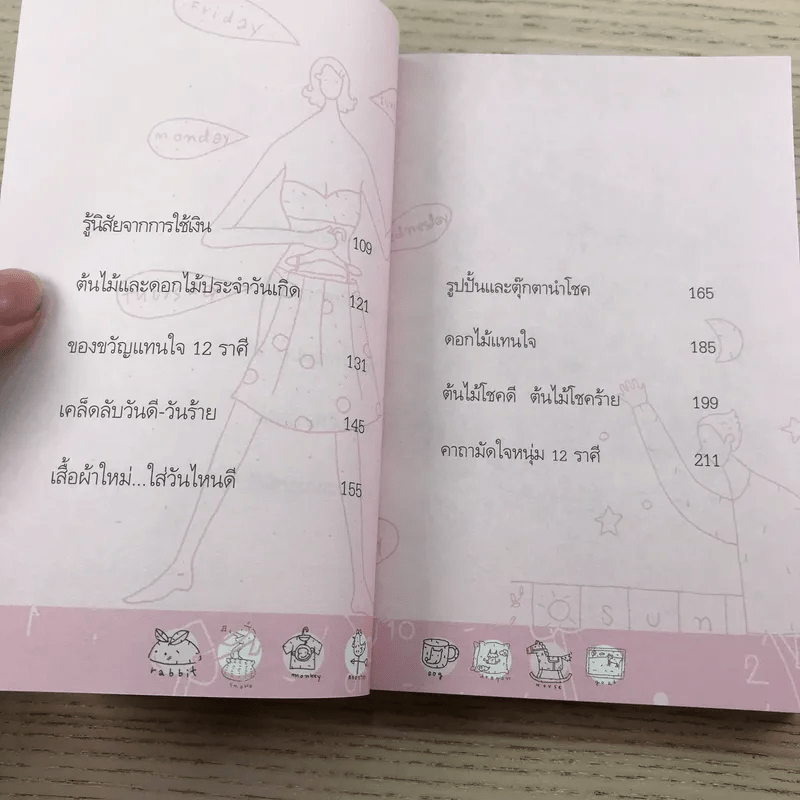 Friday
monday
รู้นิสัยจากการใช้เงิน 109
ต้นไม้และดอกไม้ประจำวันเกิด 121
ของขวัญแทนใจ 12 ราศี 131
เคล็ดลับวันดี-วันร้าย 145
เสื้อผ้าใหม่...ใส่วันไหนดี 155
rabbit
monkey
รูปปั้นและตุ๊กตานำโชค 165
ดอกไม้แทนใจ 185
ต้นไม้โชคดี ต้นไม้โชคร้าย 199
คาถามัดใจหนุ่ม 12 ราศี 211
sun
10
2
dragon
horse